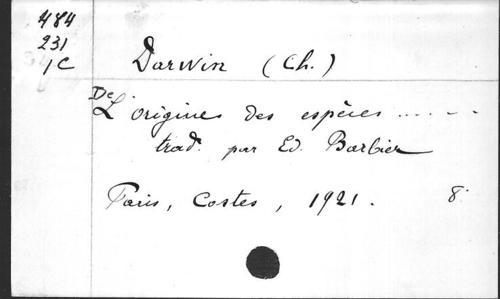 484
231
1C
Darwin (Ch.)
De L'origine des espèces ........
trad. par Ed. Barbier
Paris, Costes, 1921. 8°